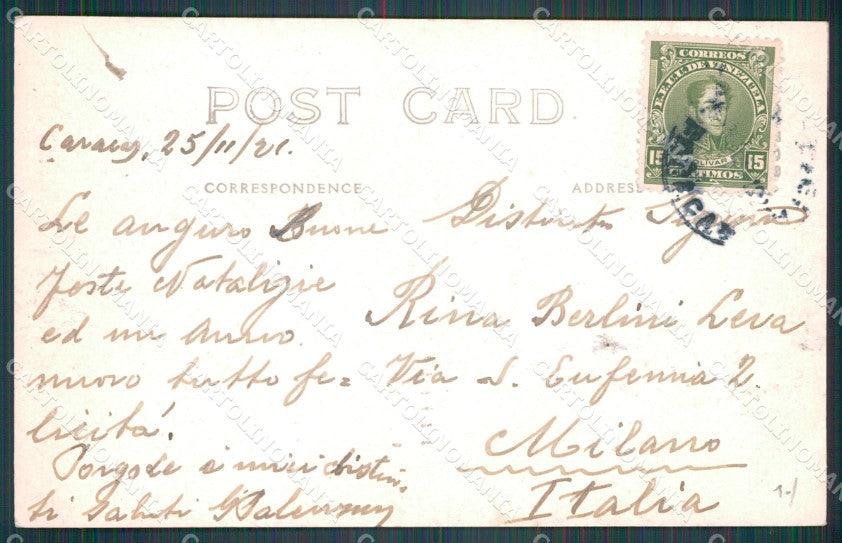 POST CARD.
Caracas, 25/11/21.
CORRESPONDENCE
ADDRESS
Le auguro Buone
feste Natalizie
ed un anno
nuovo tutto fe=
licità!
Porgole i miei distin-
ti saluti
Distinta Signora
Rina Berlini Leva
Via S. Eufemia 2.
Milano
Italia
CORREOS
E.E.U.U. DE VENEZUELA
BOLIVAR
15 15
CENTIMOS
CARACAS
1-/
CARTOLINOMANIA